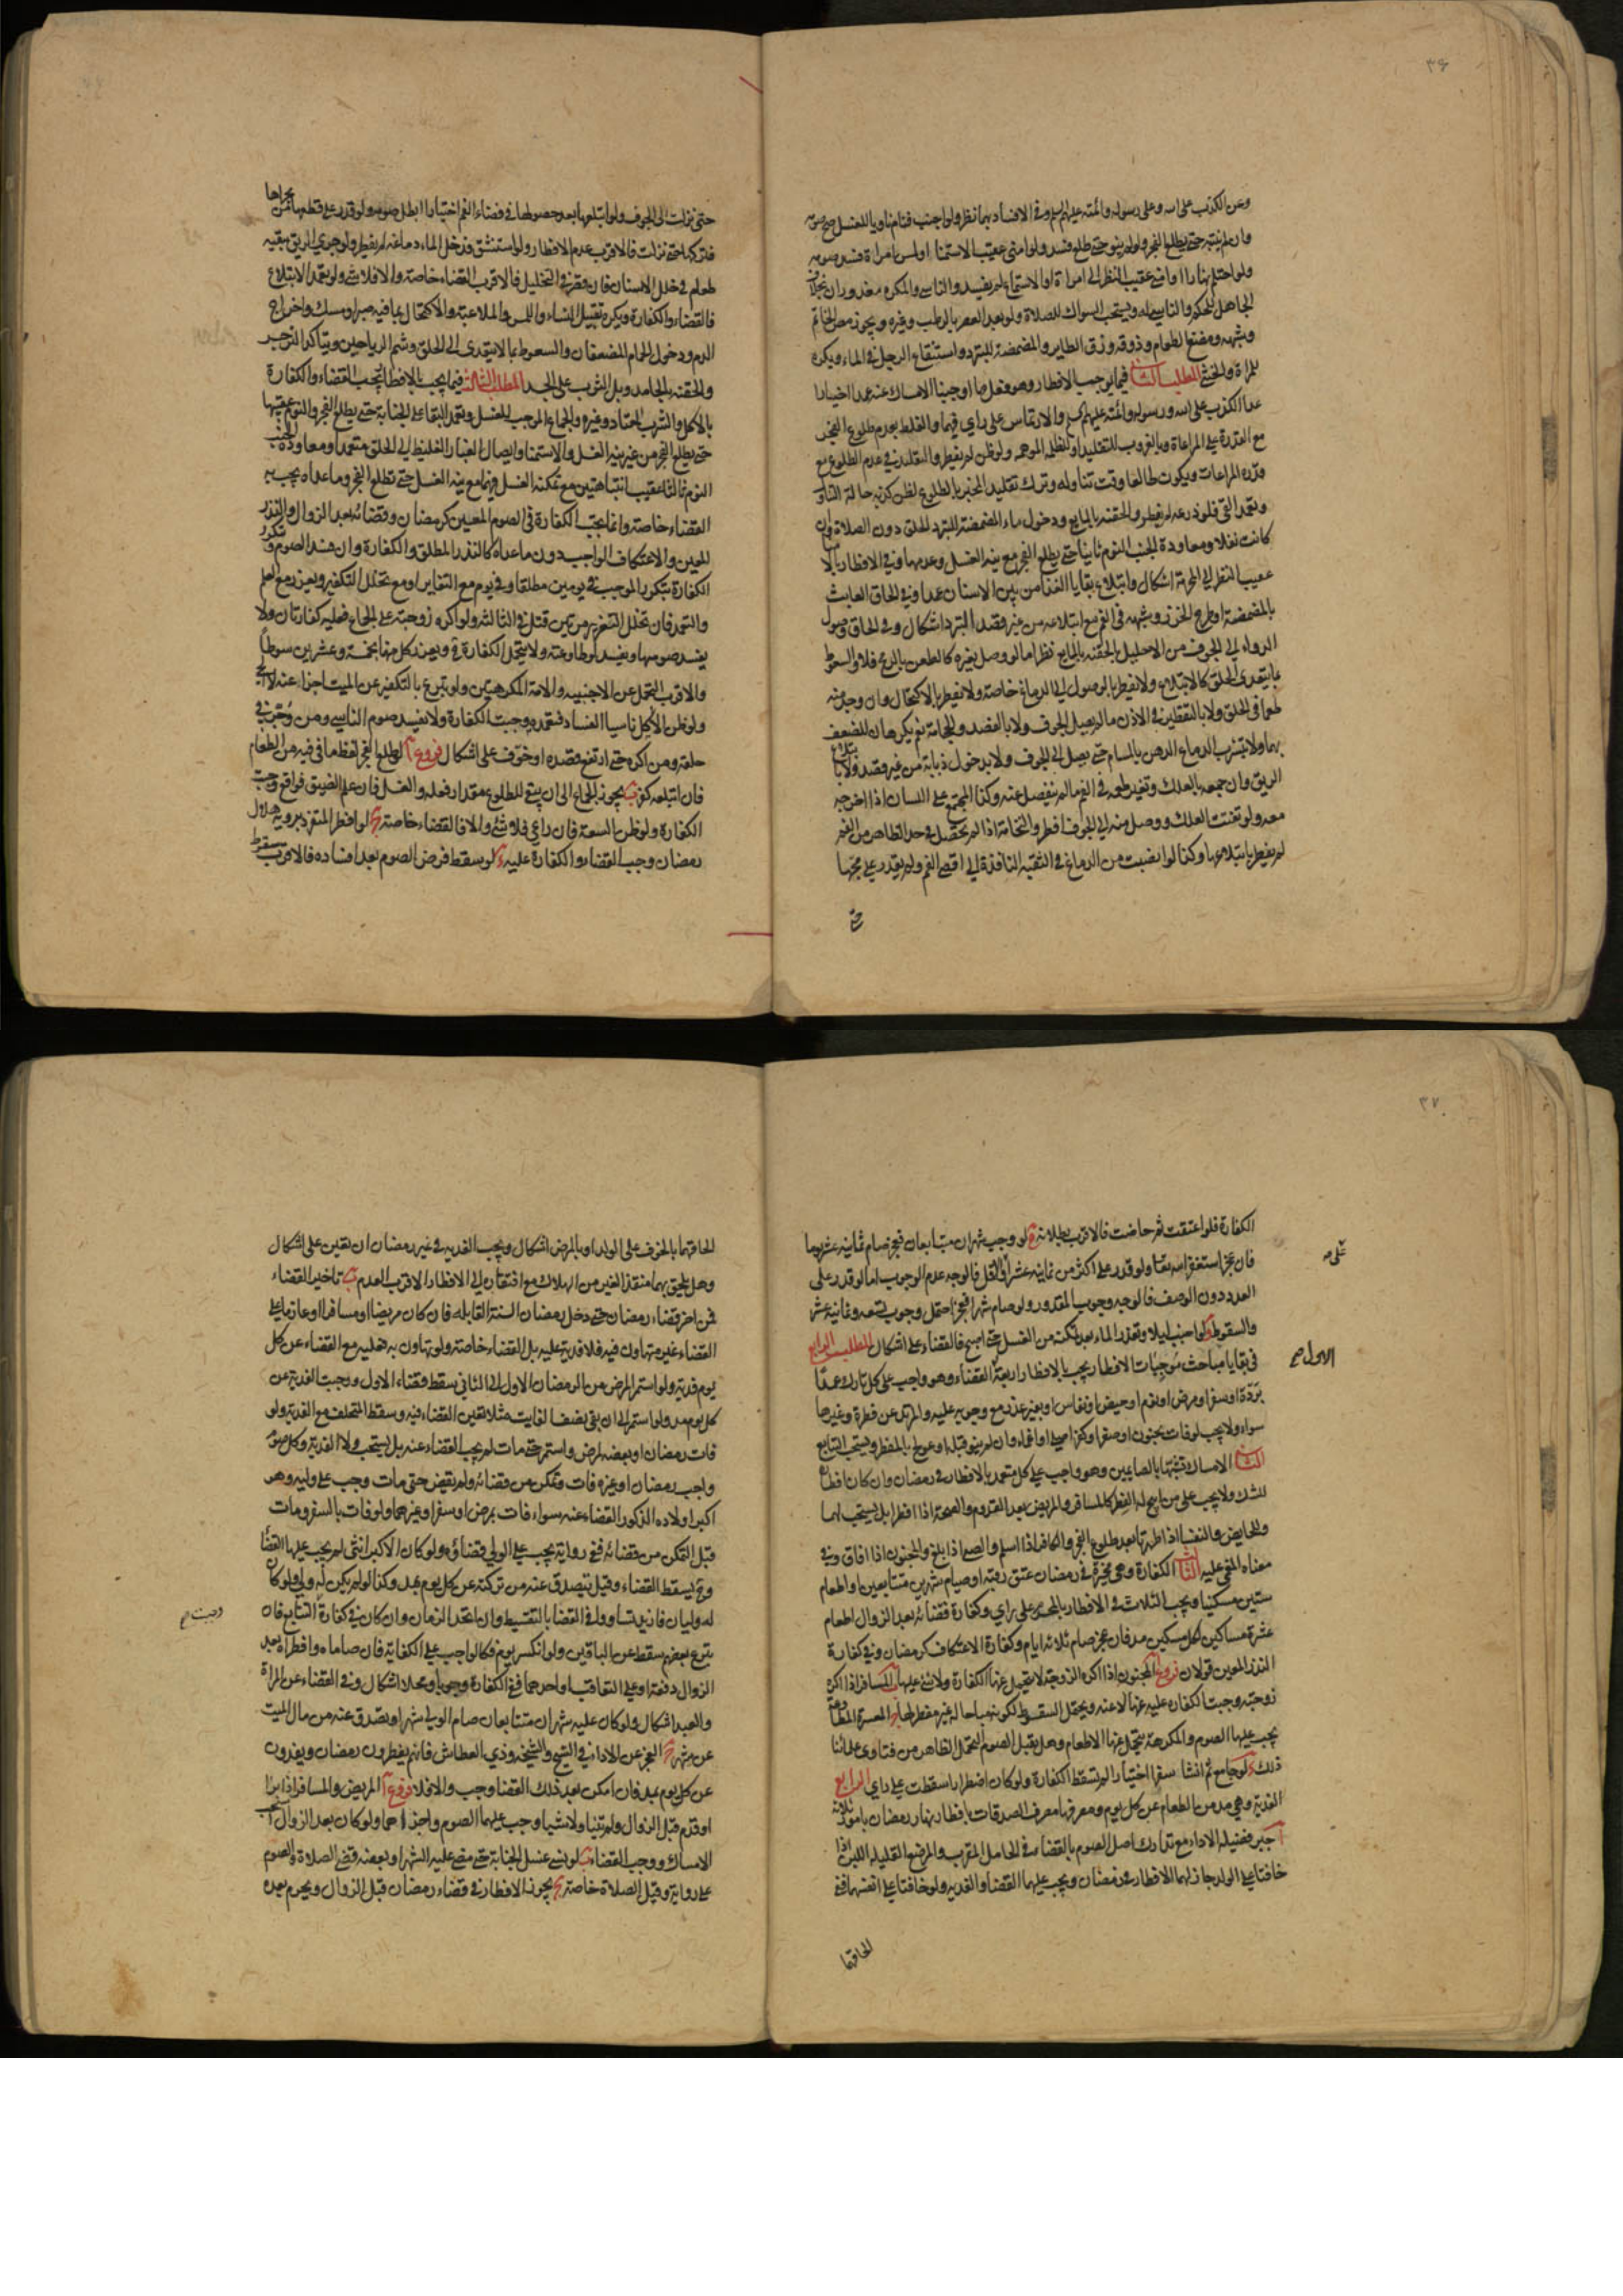 ٣۶
وعن الكذب على الله وعلى رسوله والائمة عليهم السلم وفي الافساد بهما نظر ولو اجنب فنام ناويا للغسل صح صومه
وان لم ينتبه حتى يطلع الفجر ولو لم ينو حتى طلع فسد ولو امنى عقيب الاستمنا اولمس امراة فسد صومه
ولو احتلم نهارا او امنى عقيب النظر الى امراة او الاستماع لم يفسد والناسي والمكره معذوران بخلاف
الجاهل للحكم والناسي له ويستحب السواك للصلاة ولو بعد العصر بالرطب وغيره ويجوز مص الخاتم
وشبهه ومضغ الطعام وذوقه وزق الطاير والمضمضة للتبرد واستنقاع الرجل في الماء ويكره
للمراة والخنثى المطلب الثاني فيما يوجب الافطار وهو فعل ما اوجبنا الامساك عنه عمدا اختيارا
عدا الكذب على الله ورسوله وائمته عليهم السلم والارتماس على راي فيهما والغلط بعدم طلوع الفجر
مع القدرة على المراعاة وبالغروب للتقليد او للظلمة الموهمة ولو ظن لم يفطر والتقليد في عدم الطلوع مع
قدرة المراعات ويكون طالعا وقت تناوله وترك تقليد المخبر بالطلوع لظن كذبه حالة التناول
وتعمد القي فلو ذرعه لم يفطر والحقنة بالمايع ودخول ماء المضمضة للتبرد الحلق دون الصلاة وان
كانت نفلا ومعاودة الجنب النوم ثانيا حتى يطلع الفجر مع نية الغسل وعدمها وفي الافطار بالامناء
عقيب النظر الى المحرمة اشكال وابتلاع بقايا الغذا من بين الاسنان عمدا وفي الحاق العابث
بالمضمضة او طرح الخرز وشبهه في الفم مع ابتلاعه من غير قصد المتبرد اشكال وفي الحاق وصول
الدواء الى الجوف من الاحليل بالحقنة بالمايع نظر اما لو وصل بغيره كالطعن بالرمح فلا والسعوط
بما يتعدى الحلق كالابتلاع ولا يفطر بالوصول الى الدماغ خاصة ولا يفطر بالاكتحال وان وجد منه
طعما في الحلق ولا بالتقطير في الاذن ما لم يصل الجوف ولا بالفصد والحجامة نعم يكرهان للضعيف
بهما ولا بتشرب الدماغ الدهن بالمسام حتى يصل الى الجوف ولا بدخول ذبابة من غير قصد ولا بابتلاع
الريق وان جمعه بالعلك وتغير طعمه في الفم ما لم ينفصل عنه وكذا المجتمع على اللسان اذا اخرجه
معه ولو تفتت العلك ووصل منه الى الجوف افطر والنخامة اذا لم تحصل في حد الظاهر من الفم
لم يفطر بابتلاعها وكذا لو انصبت من الدماغ في الثقبة النافذة الى اقصى الفم ولم يقدر على مجها
حتى
حتى نزلت الى الجوف ولو ابتلعها بعد حصولها في فضاء الفم اختيارا ابطل صومه ولو قدر على قطعها من مجراها
فتركها حتى نزلت فالاقرب عدم الافطار ولو استنشق فدخل الماء دماغه لم يفطر ولو جرى الريق ببقية
طعام في خلل الاسنان فان قصر في التخليل فالاقرب القضاء خاصة والا فلا شي ولو تعمد الابتلاع
فالقضاء والكفارة ويكره تقبيل النساء واللمس والملاعبة والاكتحال بما فيه صبر او مسك واخراج
الدم ودخول الحمام المضعفان والسعوط بما لا يتعدى الى الحلق وشم الرياحين ويتاكد النرجس
والحقنة بالجامد وبل الثوب على الجسد المطلب الثالث فيما يجب بالافطار تجب القضاء والكفارة
بالاكل والشرب المعتاد وغيره والجماع الموجب للغسل وتعمد البقا على الجنابة حتى يطلع الفجر والنوم عقيبها
حتى يطلع الفجر من غير نية الغسل والاستمنا وايصال الغبار الغليظ الى الحلق متعمدا ومعاودة الجنب
النوم ثالثا عقيب انتباهتين مع تمكنه الغسل فيهما مع نية الغسل حتى تطلع الفجر وما عداه يجب به
القضاء خاصة وانما تجب الكفارة في الصوم المعين كرمضان وقضائه بعد الزوال والنذر
المعين والاعتكاف الواجب دون ما عداه كالنذر المطلق والكفارة وان فسد الصوم وتتكرر
الكفارة بتكرر الموجب في يومين مطلقا وفي يوم مع التغاير او مع تخلل التكفير ويعزر مع العلم
والتعمد فان تخلل التعزير مرتين قتل في الثالثة ولو اكره زوجته على الجماع فعليه كفارتان ولا
يفسد صومها ويفسد لو طاوعته ولا يتحمل الكفارة ح ويعزر كل منهما بخمسة وعشرين سوطا
والاقرب التحمل عن الاجنبية والامة المكرهتين ولو تبرع بالتكفير عن الميت اجزاء عنه لا الحي
ولو ظن الاكل ناسيا الفساد فتعمده وجبت الكفارة ولا يفسد صوم الناسي ومن وجر في
حلقه ومن اكره حتى ارتفع قصده او خوف على اشكال فروع آ لو طلع الفجر لفظ ما في فيه من الطعام
فان ابتلعه كفر ب يجوز الجماع الى ان يبقى للطلوع مقدار فعله والغسل فان علم الضيق فواقع وجبت
الكفارة ولو ظن السعة فان راعى فلا شي والا فالقضاء خاصة ج لو افطر المنفرد بروية هلال
رمضان وجب القضاء والكفارة عليه د لو سقط فرض الصوم بعد افساده فالاقرب سقوط
٣٧
الكفارة فلو اعتقت ثم حاضت فالاقرب بطلانه ه لو وجب شهران متتابعان فعجز صام ثمانية عشر يوما
فان عجز استغفر الله تعا ولو قدر على اكثر من ثمانية عشر او اقل فالوجه عدم الوجوب اما لو قدر على
العدد دون الوصف فالوجه وجوب المقدور ولو صام شهرا فعجز احتمل وجوب تسعة وثمانية عشر
والسقوط و لو اجنب ليلا وتعذر الماء بعد تمكنه من الغسل حتى اصبح فالقضاء على اشكال المطلب الرابع
في بقايا مباحث موجبات الافطار يجب بالافطار اربعة القضاء وهو واجب على كل تارك عمدا
الاول صح
بردة او سفر او مرض او نوم او حيض او نفاس او بغير عذر مع وجوبه عليه والمرتد عن فطرة وغيرها
سواء ولا يجب لو فات بجنون او صغر او كفر اصلي او اغماء وان لم ينو قبله او عولج بالمفطر ويستحب التتابع
الثاني الامساك تشبها بالصايمين وهو واجب على كل متعمد بالافطار في رمضان وان كان افطاره
للشك ولا يجب على من ابيح له الفطر كالمسافر والمريض بعد القدوم والصحة اذا افطرا بل يستحب لهما
وللحايض والنفسا اذا طهرتا بعد طلوع الفجر والكافر اذا اسلم والصبي اذا بلغ والمجنون اذا افاق وفي
معناه المغمى عليه الثالث الكفارة وهي مخيرة في رمضان عتق رقبة او صيام شهرين متتابعين او اطعام
ستين مسكينا ويجب الثلاث في الافطار بالمحرم على راي وكفارة قضائه بعد الزوال اطعام
عشرة مساكين لكل مسكين مد فان عجز صام ثلاثة ايام وكفارة الاعتكاف كرمضان وفي كفارة
النذر المعين قولان فروع آ المجنون اذا اكره الزوجة لا يتحمل عنها الكفارة ولا شي عليها ب المسافر اذا اكره
زوجته وجبت الكفارة عليه عنها لا عنه ويحتمل السقوط لكونه مباحا له غير مفطر لها ج المعسرة المطاوعة
يجب عليها الصوم والمكرهة يتحمل عنها الاطعام وهل يقبل الصوم التحمل الظاهر من فتاوى علمائنا
ذلك د لو جامع ثم انشا سفرا اختيارا لم تسقط الكفارة ولو كان اضطرارا سقطت على راي الرابع
الفدية وهي مد من الطعام عن كل يوم ومصرفها مصرف الصدقات بافطار نهار رمضان بامور ثلاثة
آ جبر فضيلة الاداء مع تدارك اصل الصوم بالقضاء في الحامل المقرب والمرضع القليلة اللبن اذا
خافتا على الولد جاز لهما الافطار في رمضان ويجب عليهما القضا والفدية ولو خافتا على انفسهما ففي
الحاقهما
الحاقهما بالخوف على الولد او بالمرض اشكال ويجب الفدية في غير رمضان ان تعين على اشكال
وهل يلحق بهما منقذ الغير من الهلاك مع افتقاره الى الافطار الاقرب العدم ب تاخير القضاء
فمن اخر قضاء رمضان حتى دخل رمضان السنة القابلة فان كان مريضا او مسافرا او عازما على
القضاء غير متهاون فيه فلا فدية عليه بل القضاء خاصة ولو تهاون به فعليه مع القضاء عن كل
يوم فدية ولو استمر المرض من الرمضان الاول الى الثاني سقط قضاء الاول ووجبت الفدية عن
كل يوم بمد ولو استمر الى ان بقي نصف الفايت مثلا تعين القضاء فيه وسقط المتخلف مع الفدية ولو
فات رمضان او بعضه لمرض واستمر حتى مات لم يجب القضاء عنه بل يستحب ولا الفدية وكل صوم
واجب رمضان او غيره فات وتمكن من قضائه ولم يقض حتى مات وجب على وليه وهو
اكبر اولاده الذكور القضاء عنه سواء فات بمرض او سفر او غيرهما ولو فات بالسفر ومات
قبل التمكن من قضائه ففي رواية يجب على الولي قضاؤه ولو كان الاكبر انثى لم يجب عليها القضاء
وح يسقط القضاء وقيل يتصدق عنه من تركته عن كل يوم بمد وكذا لو لم يكن له ولي ولو كان
له وليان فازيد تساووا في القضا بالتقسيط وان اتحد الزمان وان كان في كفارة التتابع فان
وجبت صح
تبرع بعضهم سقط عن الباقين ولو انكسر يوم فكالواجب على الكفاية فان صاماه وافطرا فيه بعد
الزوال دفعة او على التعاقب او احدهما ففي الكفارة وجوبا ومحلا اشكال وفي القضاء عن المراة
والعبد اشكال ولو كان عليه شهران متتابعان صام الولي شهرا وتصدق عنه من مال الميت
عن شهر ج العجز عن الاداء في الشيخ والشيخة وذي العطاش فانهم يفطرون رمضان ويفدون
عن كل يوم بمد فان امكن بعد ذلك القضا وجب والا فلا فروع آ المريض والمسافر اذا برا
او قدم قبل الزوال ولم يتناولا شيا وجب عليهما الصوم واجزاهما ولو كان بعد الزوال استحب
الامساك ووجب القضاء ب لو نسي غسل الجنابة حتى مضى عليه الشهر او بعضه قضى الصلاة والصوم
على رواية وقيل الصلاة خاصة ج يجوز الافطار في قضاء رمضان قبل الزوال ويحرم بعده